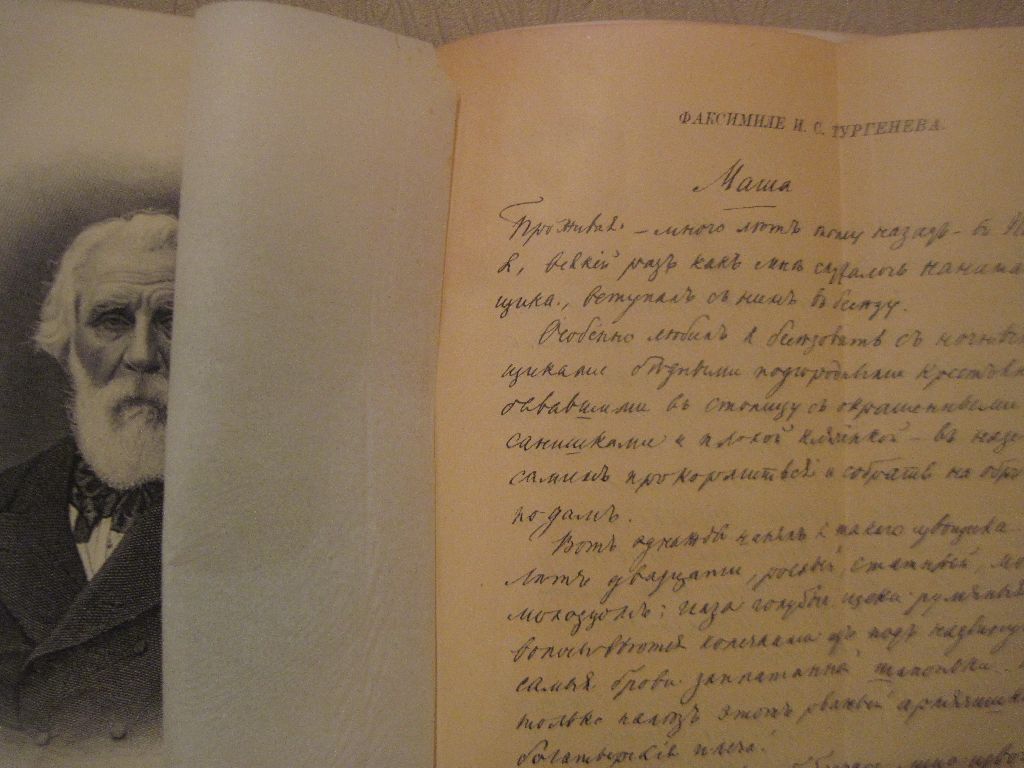 ФАКСИМИЛЕ И. С. ТУРГЕНЕВА.
Маша
Проживая – много лѣтъ тому назадъ – въ
я, всякій разъ какъ мнѣ случалось
щика, вступалъ съ нимъ въ бесѣду.
Особенно любилъ я бесѣдовать съ
щиками бѣдными подгородными
бывавшими въ столицу съ окрашенными
санишками и плохой клячонкой – въ
самимъ прокормиться и собрать на
подамъ.
Вотъ однажды нанялъ я такого извощика
Лѣтъ двадцати, рослый, статный,
молодцомъ; глаза голубые, щеки румяные
волосы вьются колечками изъ подъ
самыя брови заплатанной шапоньки.
только налѣзъ этотъ рваный армячишко
богатырскія плеча!